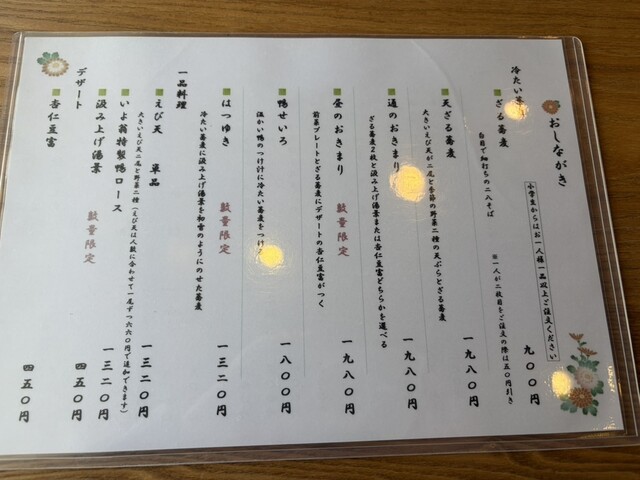 おしながき
小学生からはお一人様一品以上ご注文ください
冷たい
ざる蕎麦 九〇〇円
白目で細打ちの二八そば
※一人が二枚目をご注文の際は五〇円引き
天ざる蕎麦 一九八〇円
大きいえび天が二尾と季節の野菜二種の天ぷらとざる蕎麦
通のおきまり 一九八〇円
ざる蕎麦2枚と汲み上げ湯葉または杏仁豆富どちらかを選べる
昼のおきまり 数量限定 一九八〇円
前菜プレートとざる蕎麦にデザートの杏仁豆富がつく
鴨せいろ 一八〇〇円
温かい鴨のつけ汁に冷たい蕎麦をつける
はつゆき 数量限定 一三二〇円
冷たい蕎麦に汲み上げ湯葉を初雪のようにのせた蕎麦
一品料理
えび天 単品 一三二〇円
大きいえび天二尾と野菜二種(えび天は人数に合わせて一尾ずつ六六〇円で追加できます)
いよ翁特製鴨ロース 一三二〇円
汲み上げ湯葉 数量限定 四五〇円
デザート
杏仁豆富 四五〇円